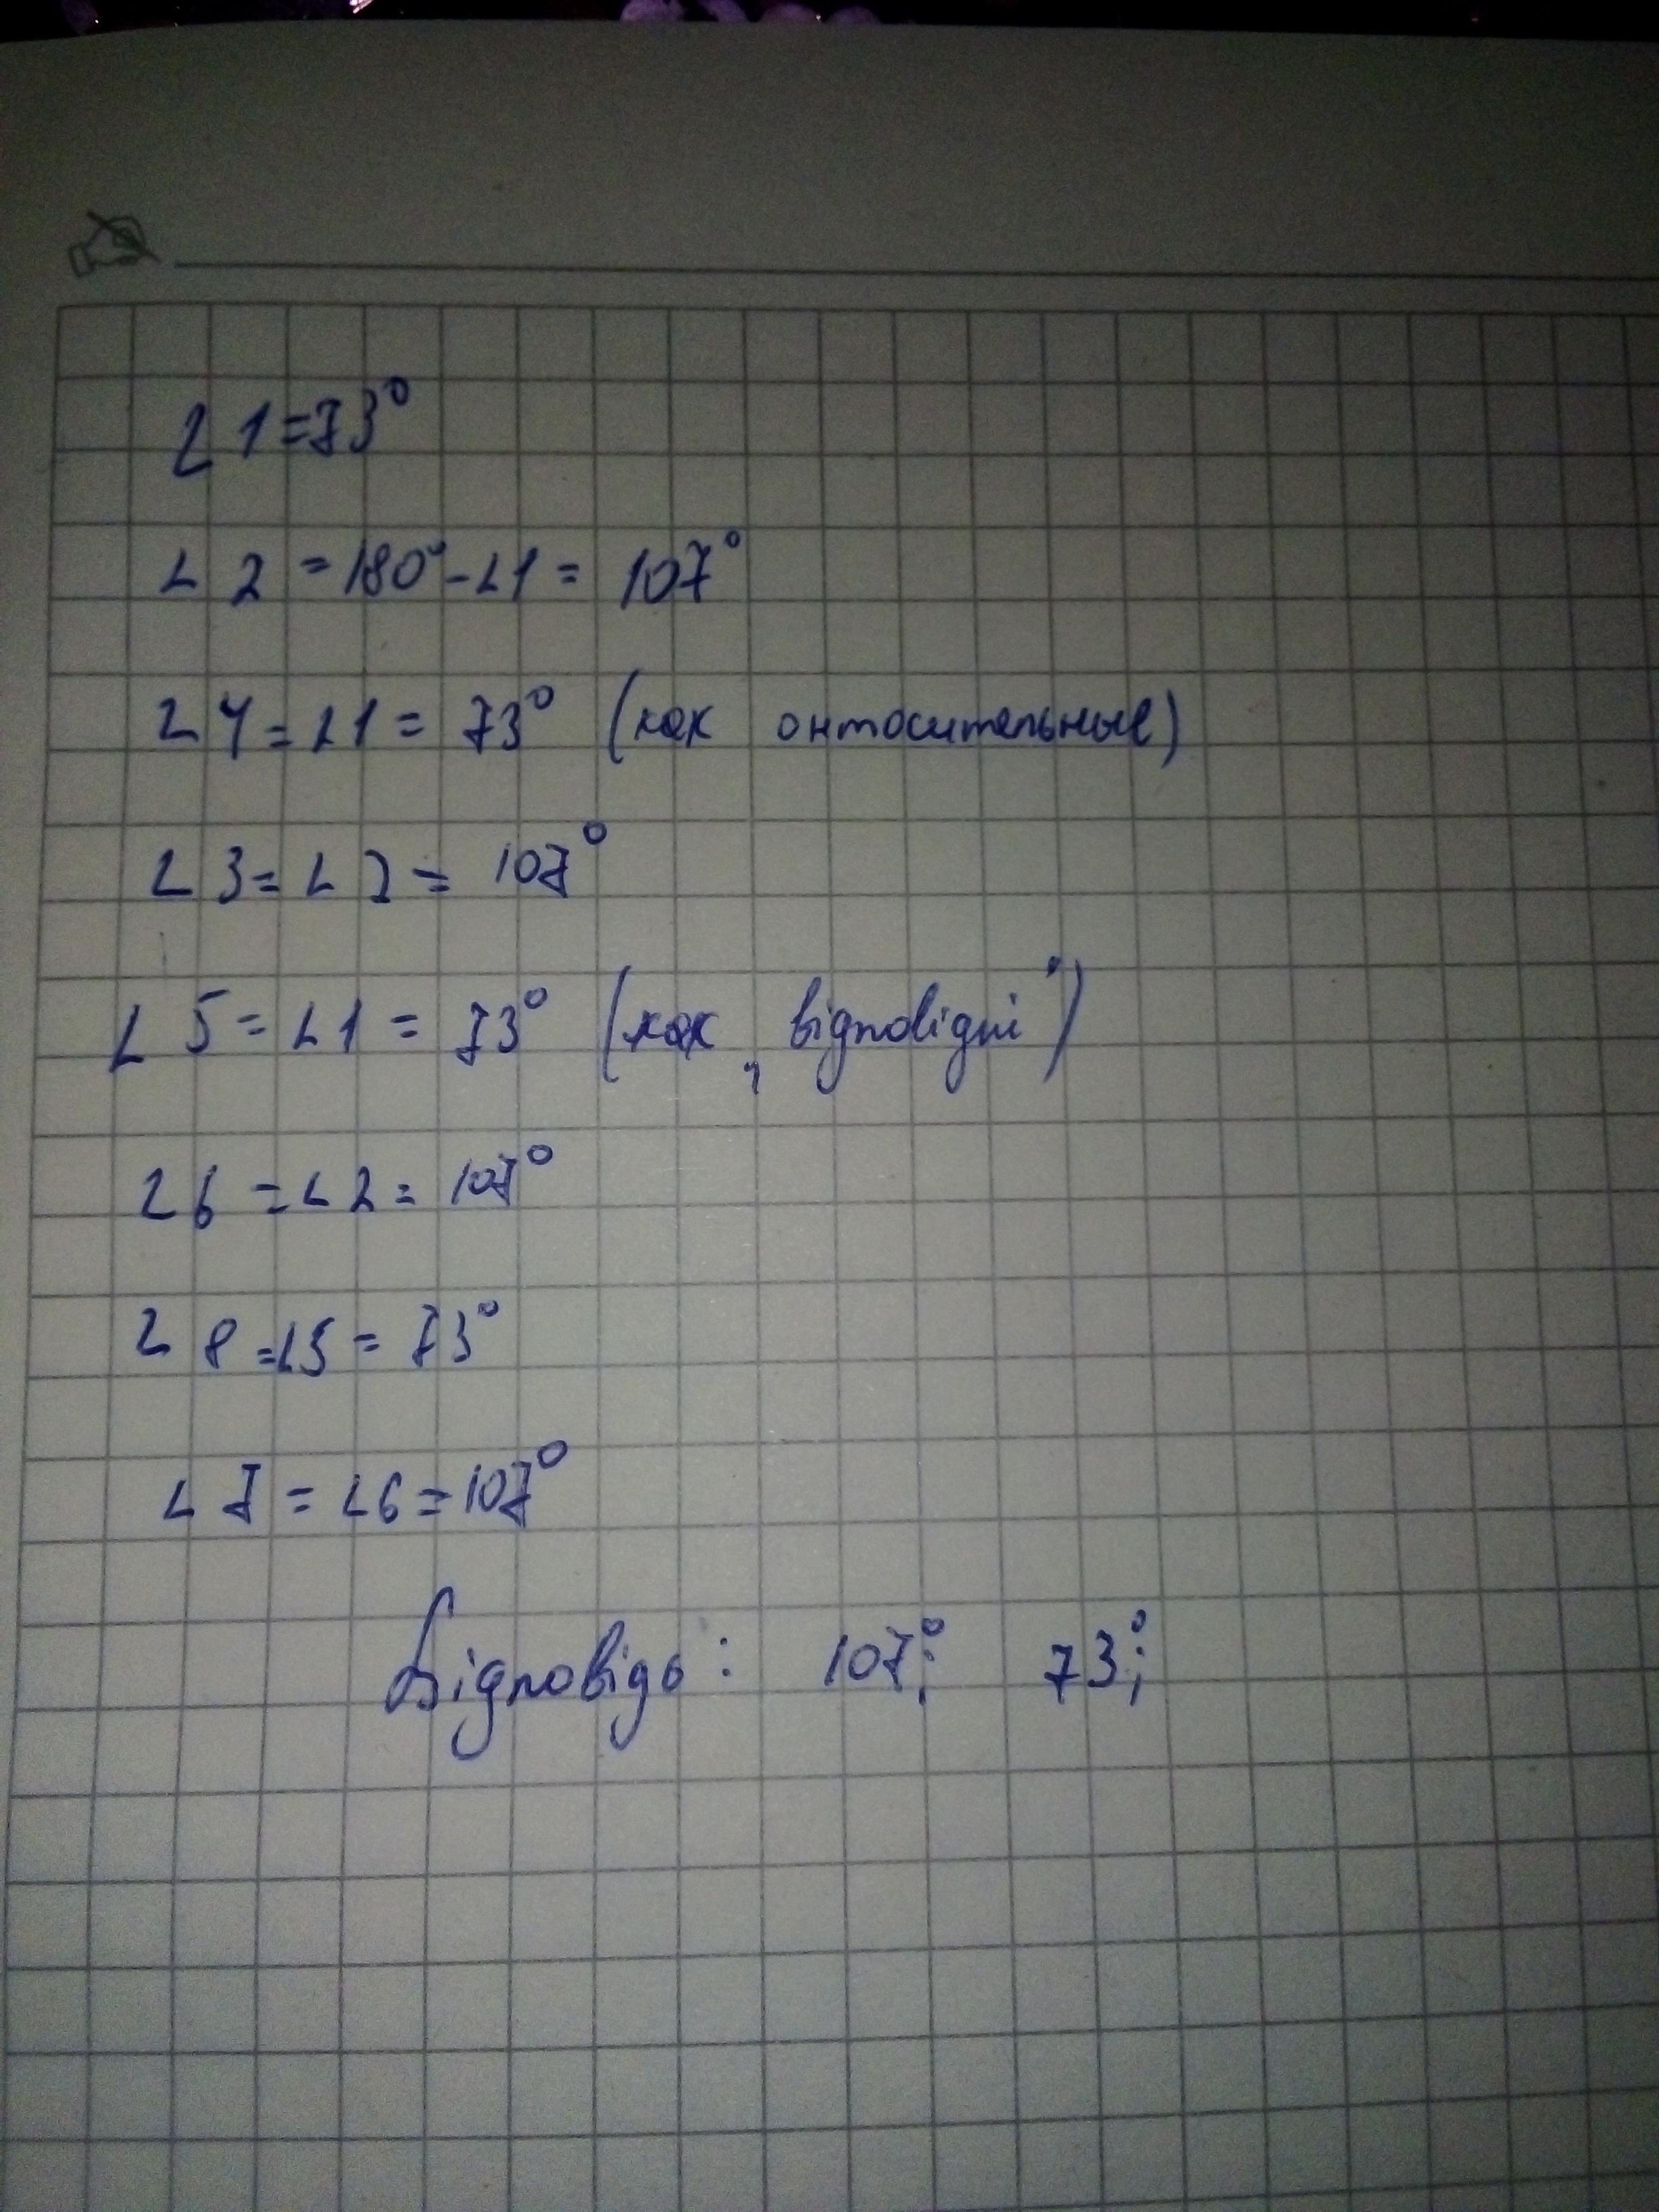 ∠1=73°
∠2=180°-∠1=107°
∠4=∠1=73° (как онтосительные)
∠3=∠2=107°
∠5=∠1=73° (как „відповідні")
∠6=∠2=107°
∠8=∠5=73°
∠7=∠6=107°
Відповідь: 107°; 73°;